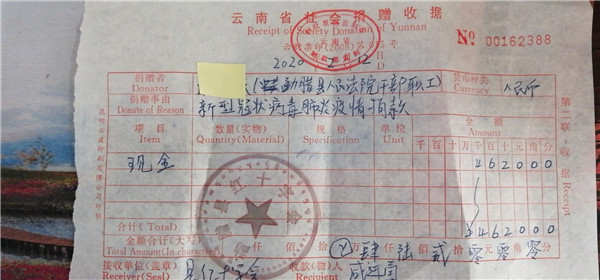 云南省社会捐赠收据
Receipt of Society Donation of Yunnan
2020 2 12
№ 00162388
捐赠者 (勐腊县人民法院干部职工) 货币种类 人民币
Donator Currency
捐赠事由 新型冠状病毒肺炎疫情捐款
Donate of Reason
项目 数量(实物) 规格 单位 金额
Item Quantity(Material) Specification Unit Amount
千 百 十 万 千 百 十 元 角 分
现金 462000
合计(Total) 462000
金额合计(大写) 仟 佰 拾 肆 陆 佰 贰 拾 零 元 零 角 零 分
Total Amount(in Character)
接收单位(盖章) 收款(物)人
Receiver(Seal) Recipient
第二联:收据 Receipt